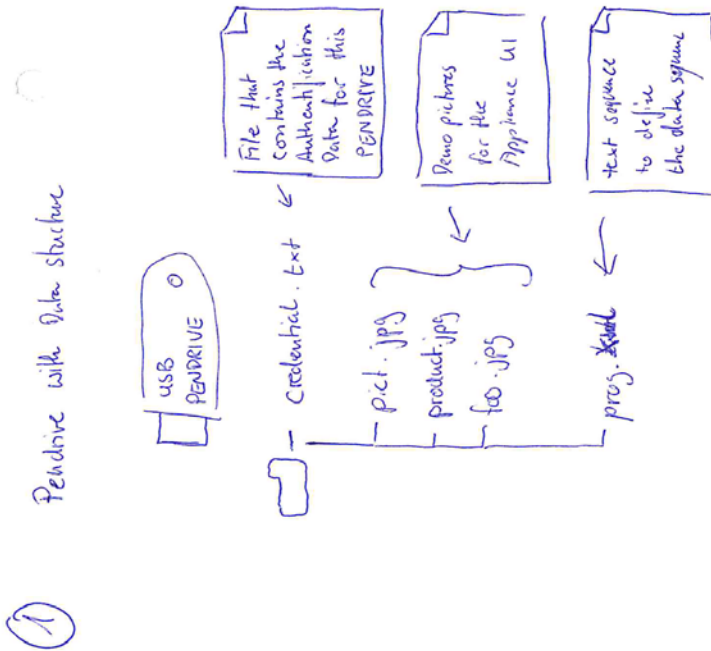 1
Pendrive with Data structure
USB
PENDRIVE
credential.txt
File that
contains the
Authentification
Data for this
PENDRIVE
pict.jpg
product.jpg
foo.jpg
Demo pictures
for the
Appliance UI
prog.
text sequence
to define
the data sequence